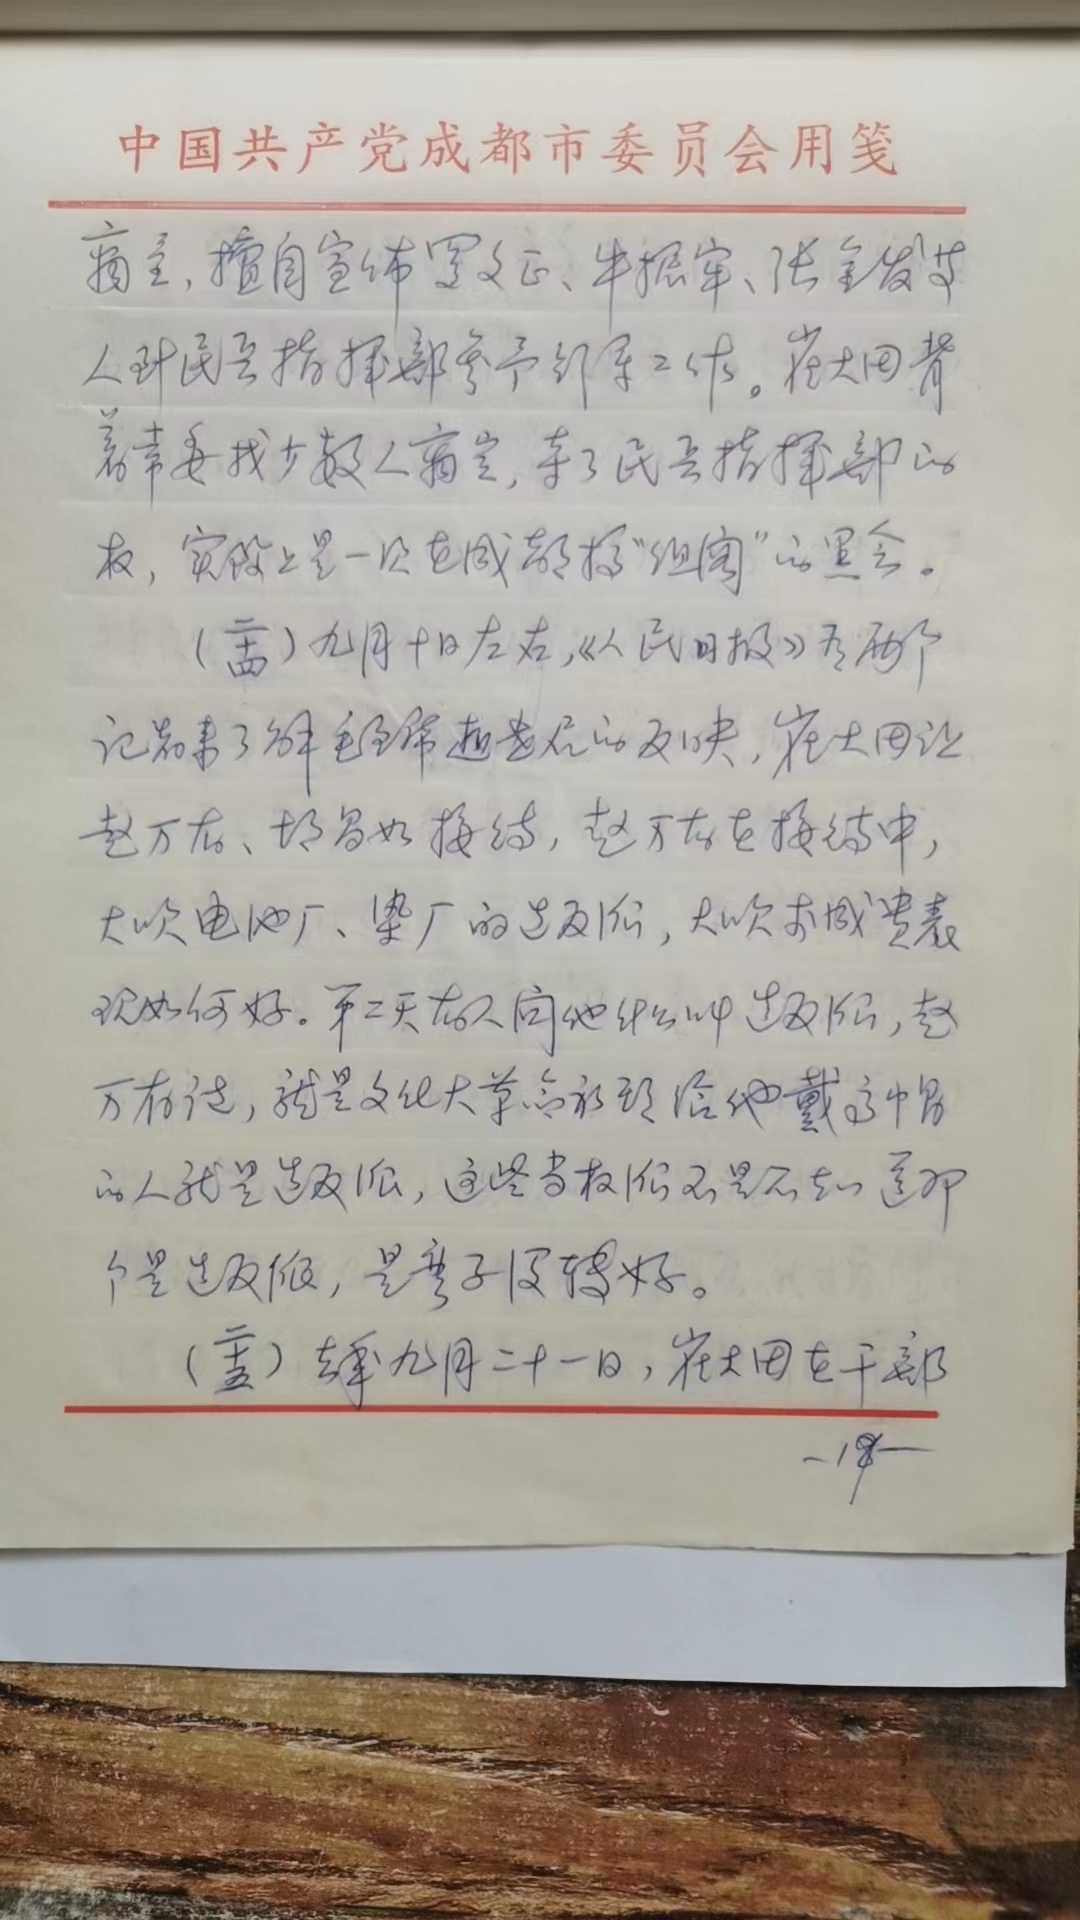 中国共产党成都市委员会用笺
商定，擅自宣布罗文正、牛振军、张金发等
人到民兵指挥部参予领军工作。崔大田背
着常委找少数人商定，夺了民兵指挥部的
权，实际上是一次在成都搞“组阁”的黑会。
（二十四）九月十日左右，《人民日报》有两个
记者来了解毛主席逝世后的反映，崔大田让
赵万存、胡昌如接待，赵万存在接待中，
大吹电池厂、染厂的造反派，大吹李成贵表
现如何好。第二天有人问他什么叫造反派，赵
万存说，就是文化大革命初期给他戴高帽
的人就是造反派，这些当权派不是不知道那
个是造反派，是弯子没转好。
（二十五）去年九月二十一日，崔大田在干部